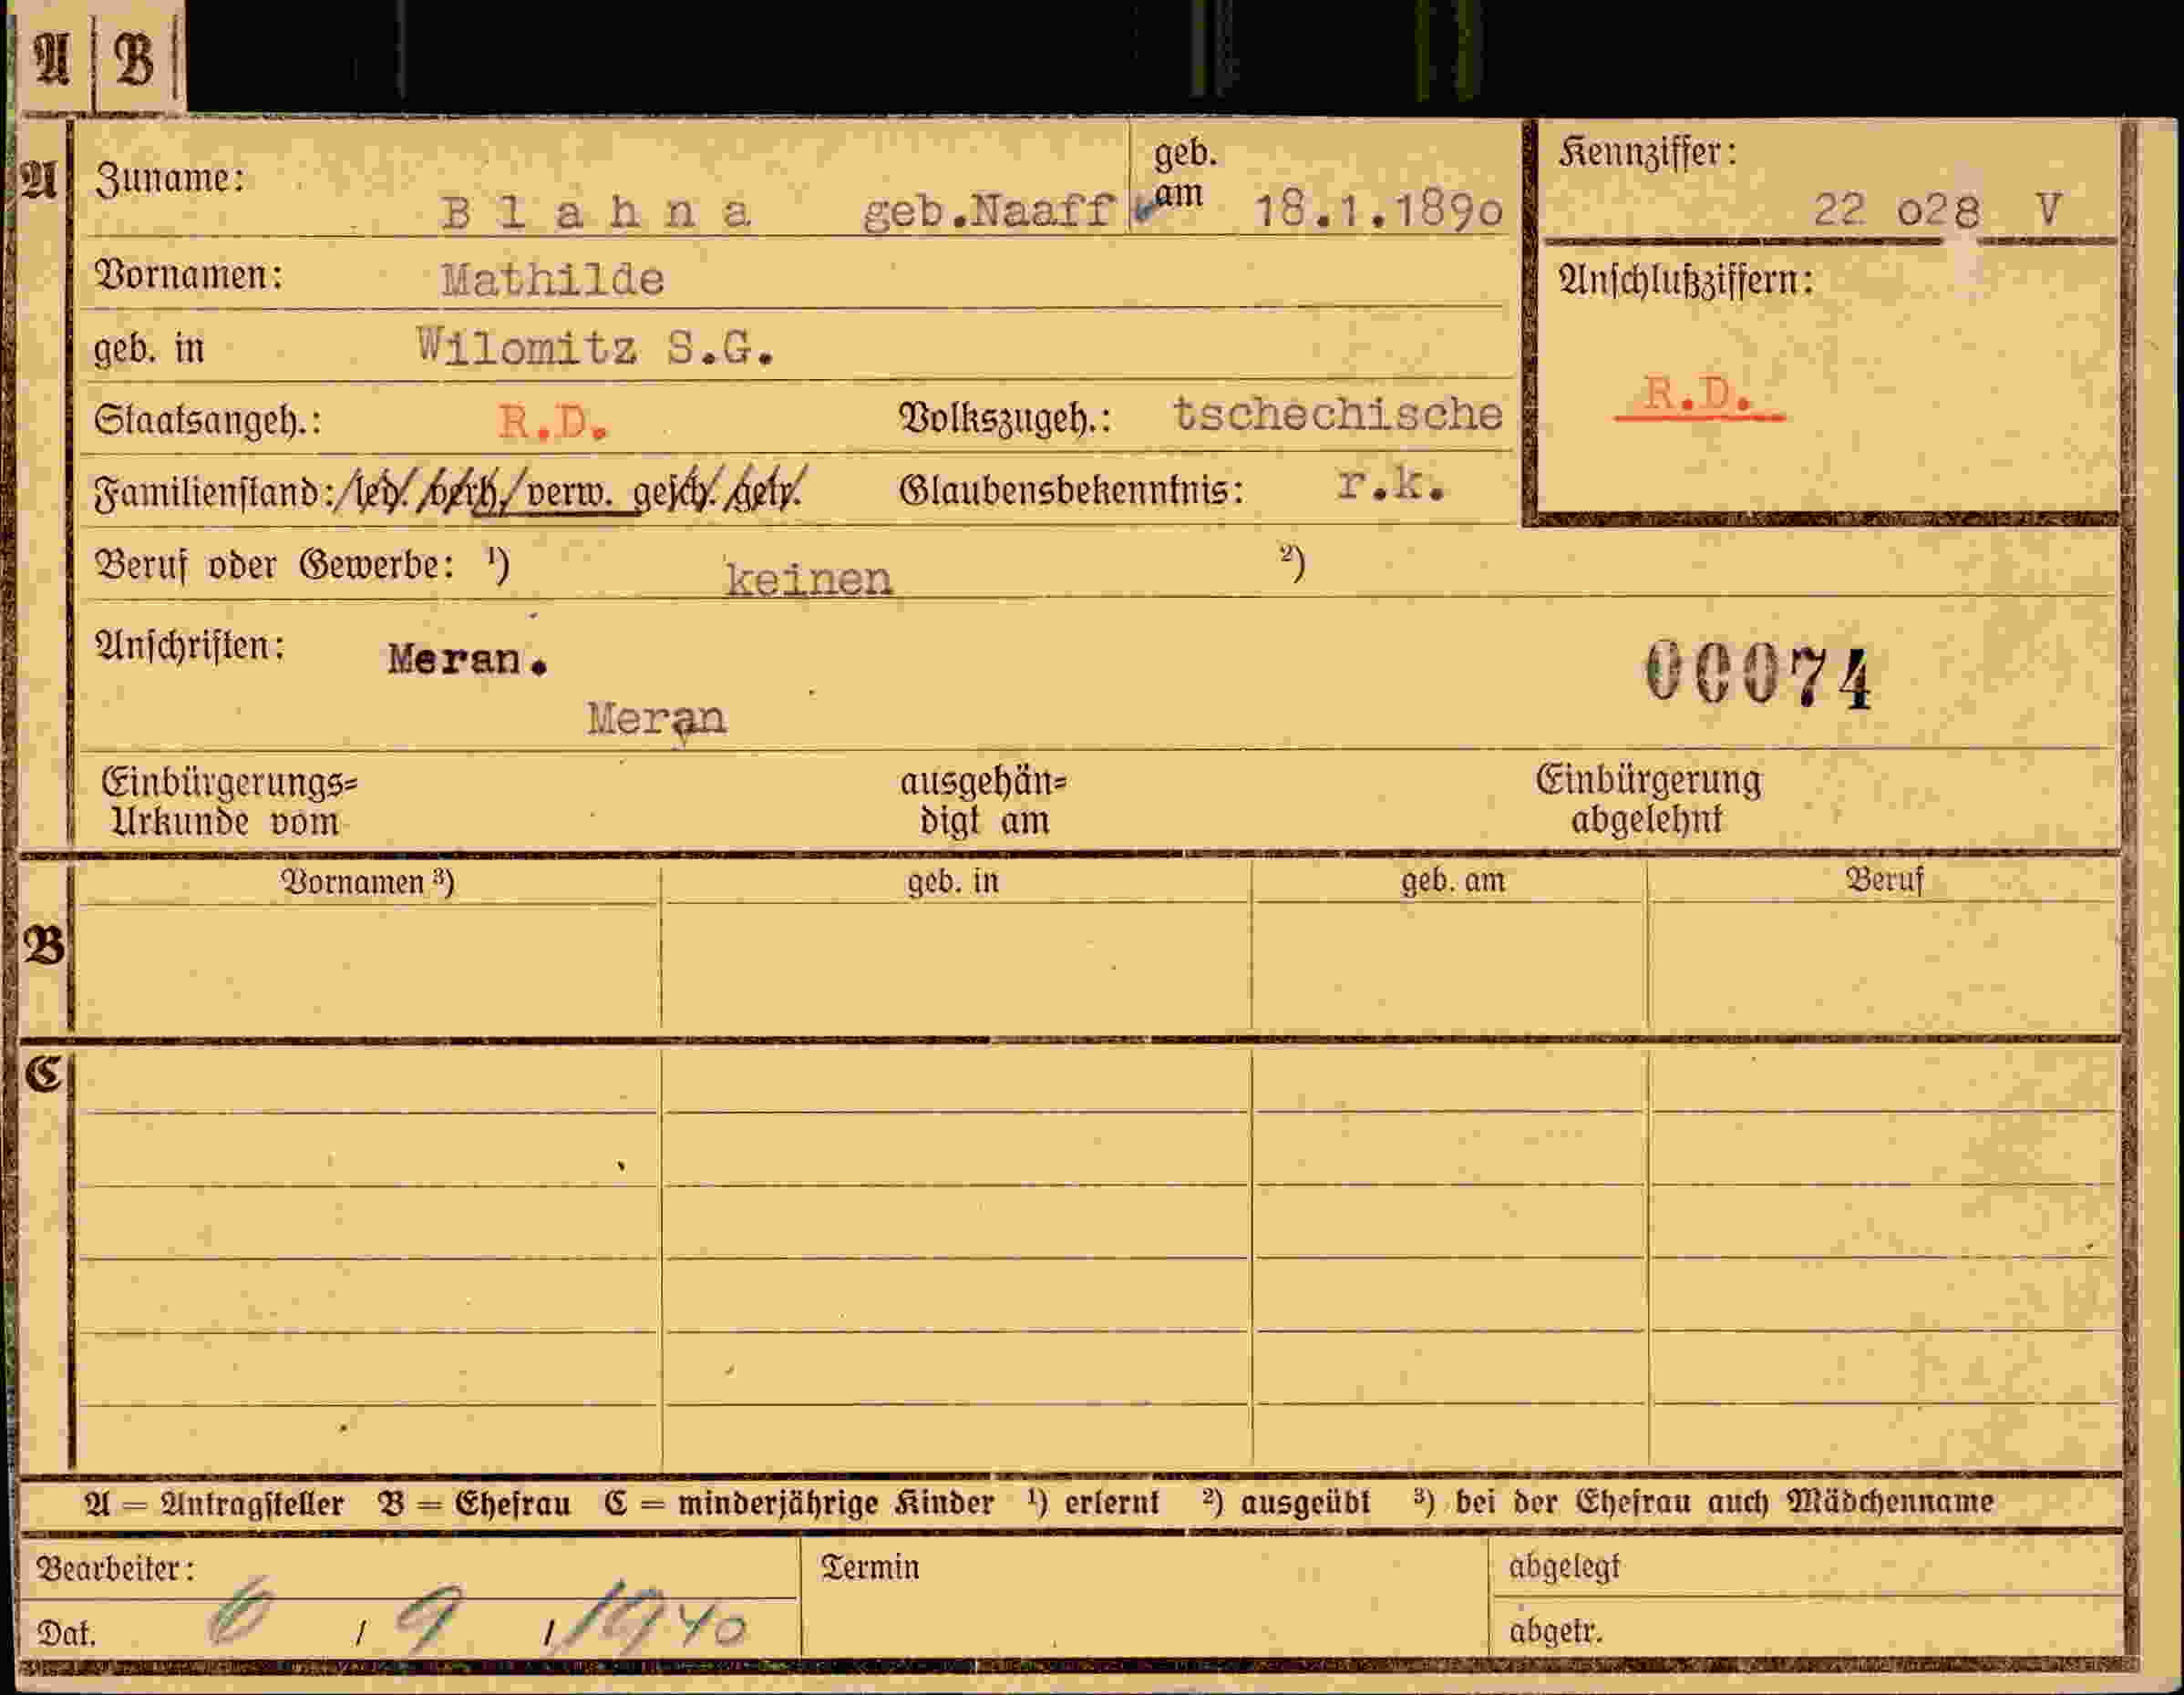 A B
A
Zuname: B l a h n a geb.Naaff geb. am 18.1.1890
Kennziffer: 22 o28 V
Vornamen: Mathilde
Anschlußziffern:
R.D.
geb. in Wilomitz S.G.
Staatsangeh.: R.D. Volkszugeh.: tschechische
Familienstand: led. verh. verw. gesch. getr. Glaubensbekenntnis: r.k.
Beruf oder Gewerbe: ¹) keinen ²)
Anschriften: Meran.
00074
Meran
Einbürgerungs= Urkunde vom ausgehän= digt am Einbürgerung abgelehnt
B
Vornamen ³) geb. in geb. am Beruf
C
A = Antragsteller B = Ehefrau C = minderjährige Kinder ¹) erlernt ²) ausgeübt ³) bei der Ehefrau auch Mädchenname
Bearbeiter: Termin abgelegt
Dat. 6 / 9 / 1940 abgetr.